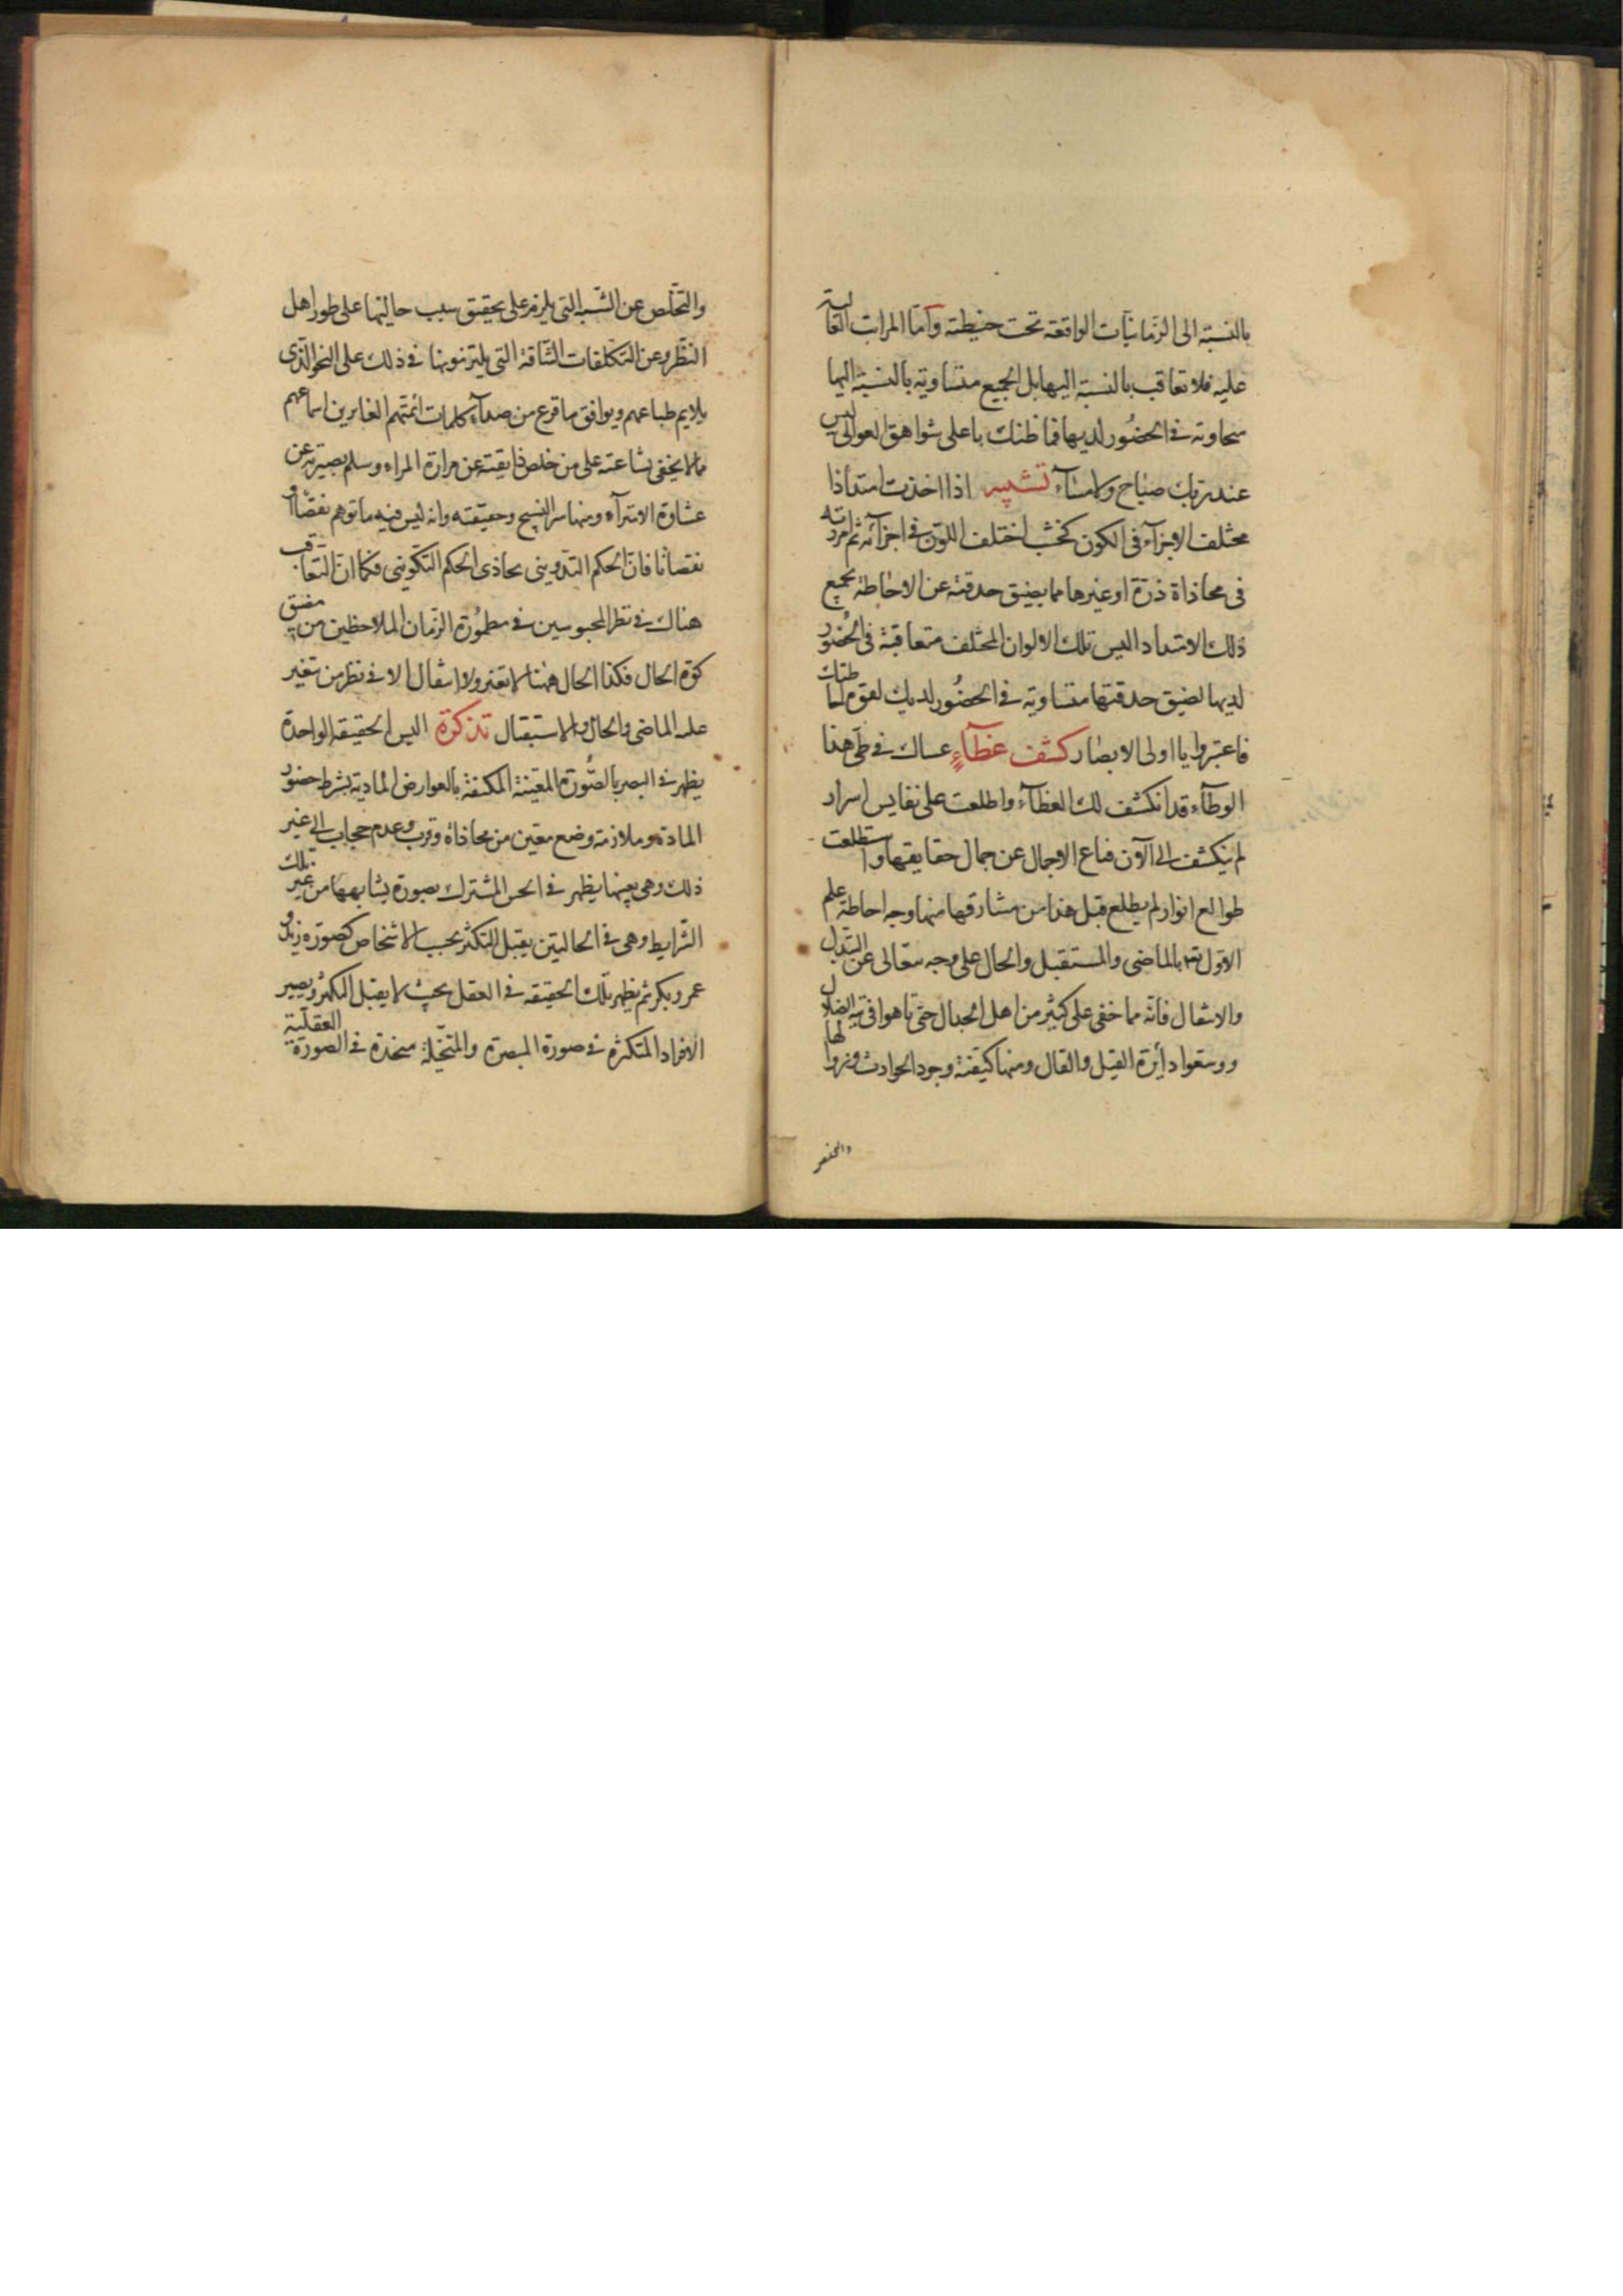 بالنسبة الى الزمانيات الواقعة تحت حيطته وامّا المراتب العالية
عليه فلا تعاقب بالنسبة اليها بل الجميع متساوية بالنسبة اليها
متحاوية فى الحضُور لديها فما ظنك باعلى شواهق العوالى ليس
عند ربك صباح ولا مسآء تشبيه اذا اخذت امتدادا
مختلف الاجزآء فى الكون كخشب اختلف اللون فى اجزآئه ثم امررته
فى محاذاة ذرّة او غيرها مما يضيق حدقته عن الاحاطة بجميع
ذلك الامتداد اليس تلك الالوان المختلف متعاقبة فى الحُضور
لديها لضيق حدقتها متساوية فى الحضُور لديك لقوة احاطتك
فاعتبروا يا اولى الابصار كشف غطآء عساك فى طى هذا
الوطآء قد انكشف لك الغطآء واطلعت على نفايس اسرار
لم ينكشف الى الآن قناع الاجمال عن جمال حقايقها واستطلعت
طوالع انوار لم يطلع قبل هذا من مشارقها منها وجه احاطة علم
الاوّل تع بالماضى والمستقبل والحال على وجه متعالى عن التبدل
والانتقال فانّه مما خفى على كثير من اهل الجدال حتى تاهوا فى تيه الضلال
ووسّعوا دايرة القيل والقال ومنها كيفية وجود الحوادث وزوالها
والتخلص
والتخلّص عن الشبه التى يلزم على تحقيق سبب حاليتها على طور اهل
النظر وعن التكلفات الشاقة التى يلتزمونها فى ذلك على النحو الذى
يلايم طباعهم ويوافق ما قرع من صدآء كلمات ائمتهم الغابرين اسماعهم
مما لا يخفى بشاعته على من خلص ذايقته عن مرارة المراء وسلم بصيرته عن
غشاوة الامترآء ومنها سر النسخ وحقيقته وانه ليس فيه ما توهم نقضا او
نقصانا فان الحكم التدوينى يحاذى الحكم التكوينى فكما ان التعاقب
هناك فى نظر المحبوسين فى مطمُورة الزمان الملاحظين من مضيق
كوّة الحال فكذا الحال ههنا لا تغير ولا انتقال الا فى نظر من تغير
عليه الماضى والحال والاستقبال تذكرة اليس الحقيقة الواحدة
يظهر فى البصر بالصُّورة المعينة المكنفة بالعوارض المادية بشرط حضور
المادة وملازمة وضع معين من محاذاة وقرب وعدم حجاب الى غير
ذلك وهى بعينها يظهر فى الحس المشترك بصورة يشابهها من غير تلك
الشرايط وهى فى الحاليتين يقبل التكثر بحسب الاشخاص كصورة زيد و
عمرو وبكر ثم يظهر تلك الحقيقة فى العقل بحيث لا يقبل التكثر ويصير
الافراد المتكثرة فى صورة المبصرة والمتخيلة متحدة فى الصورة العقلية